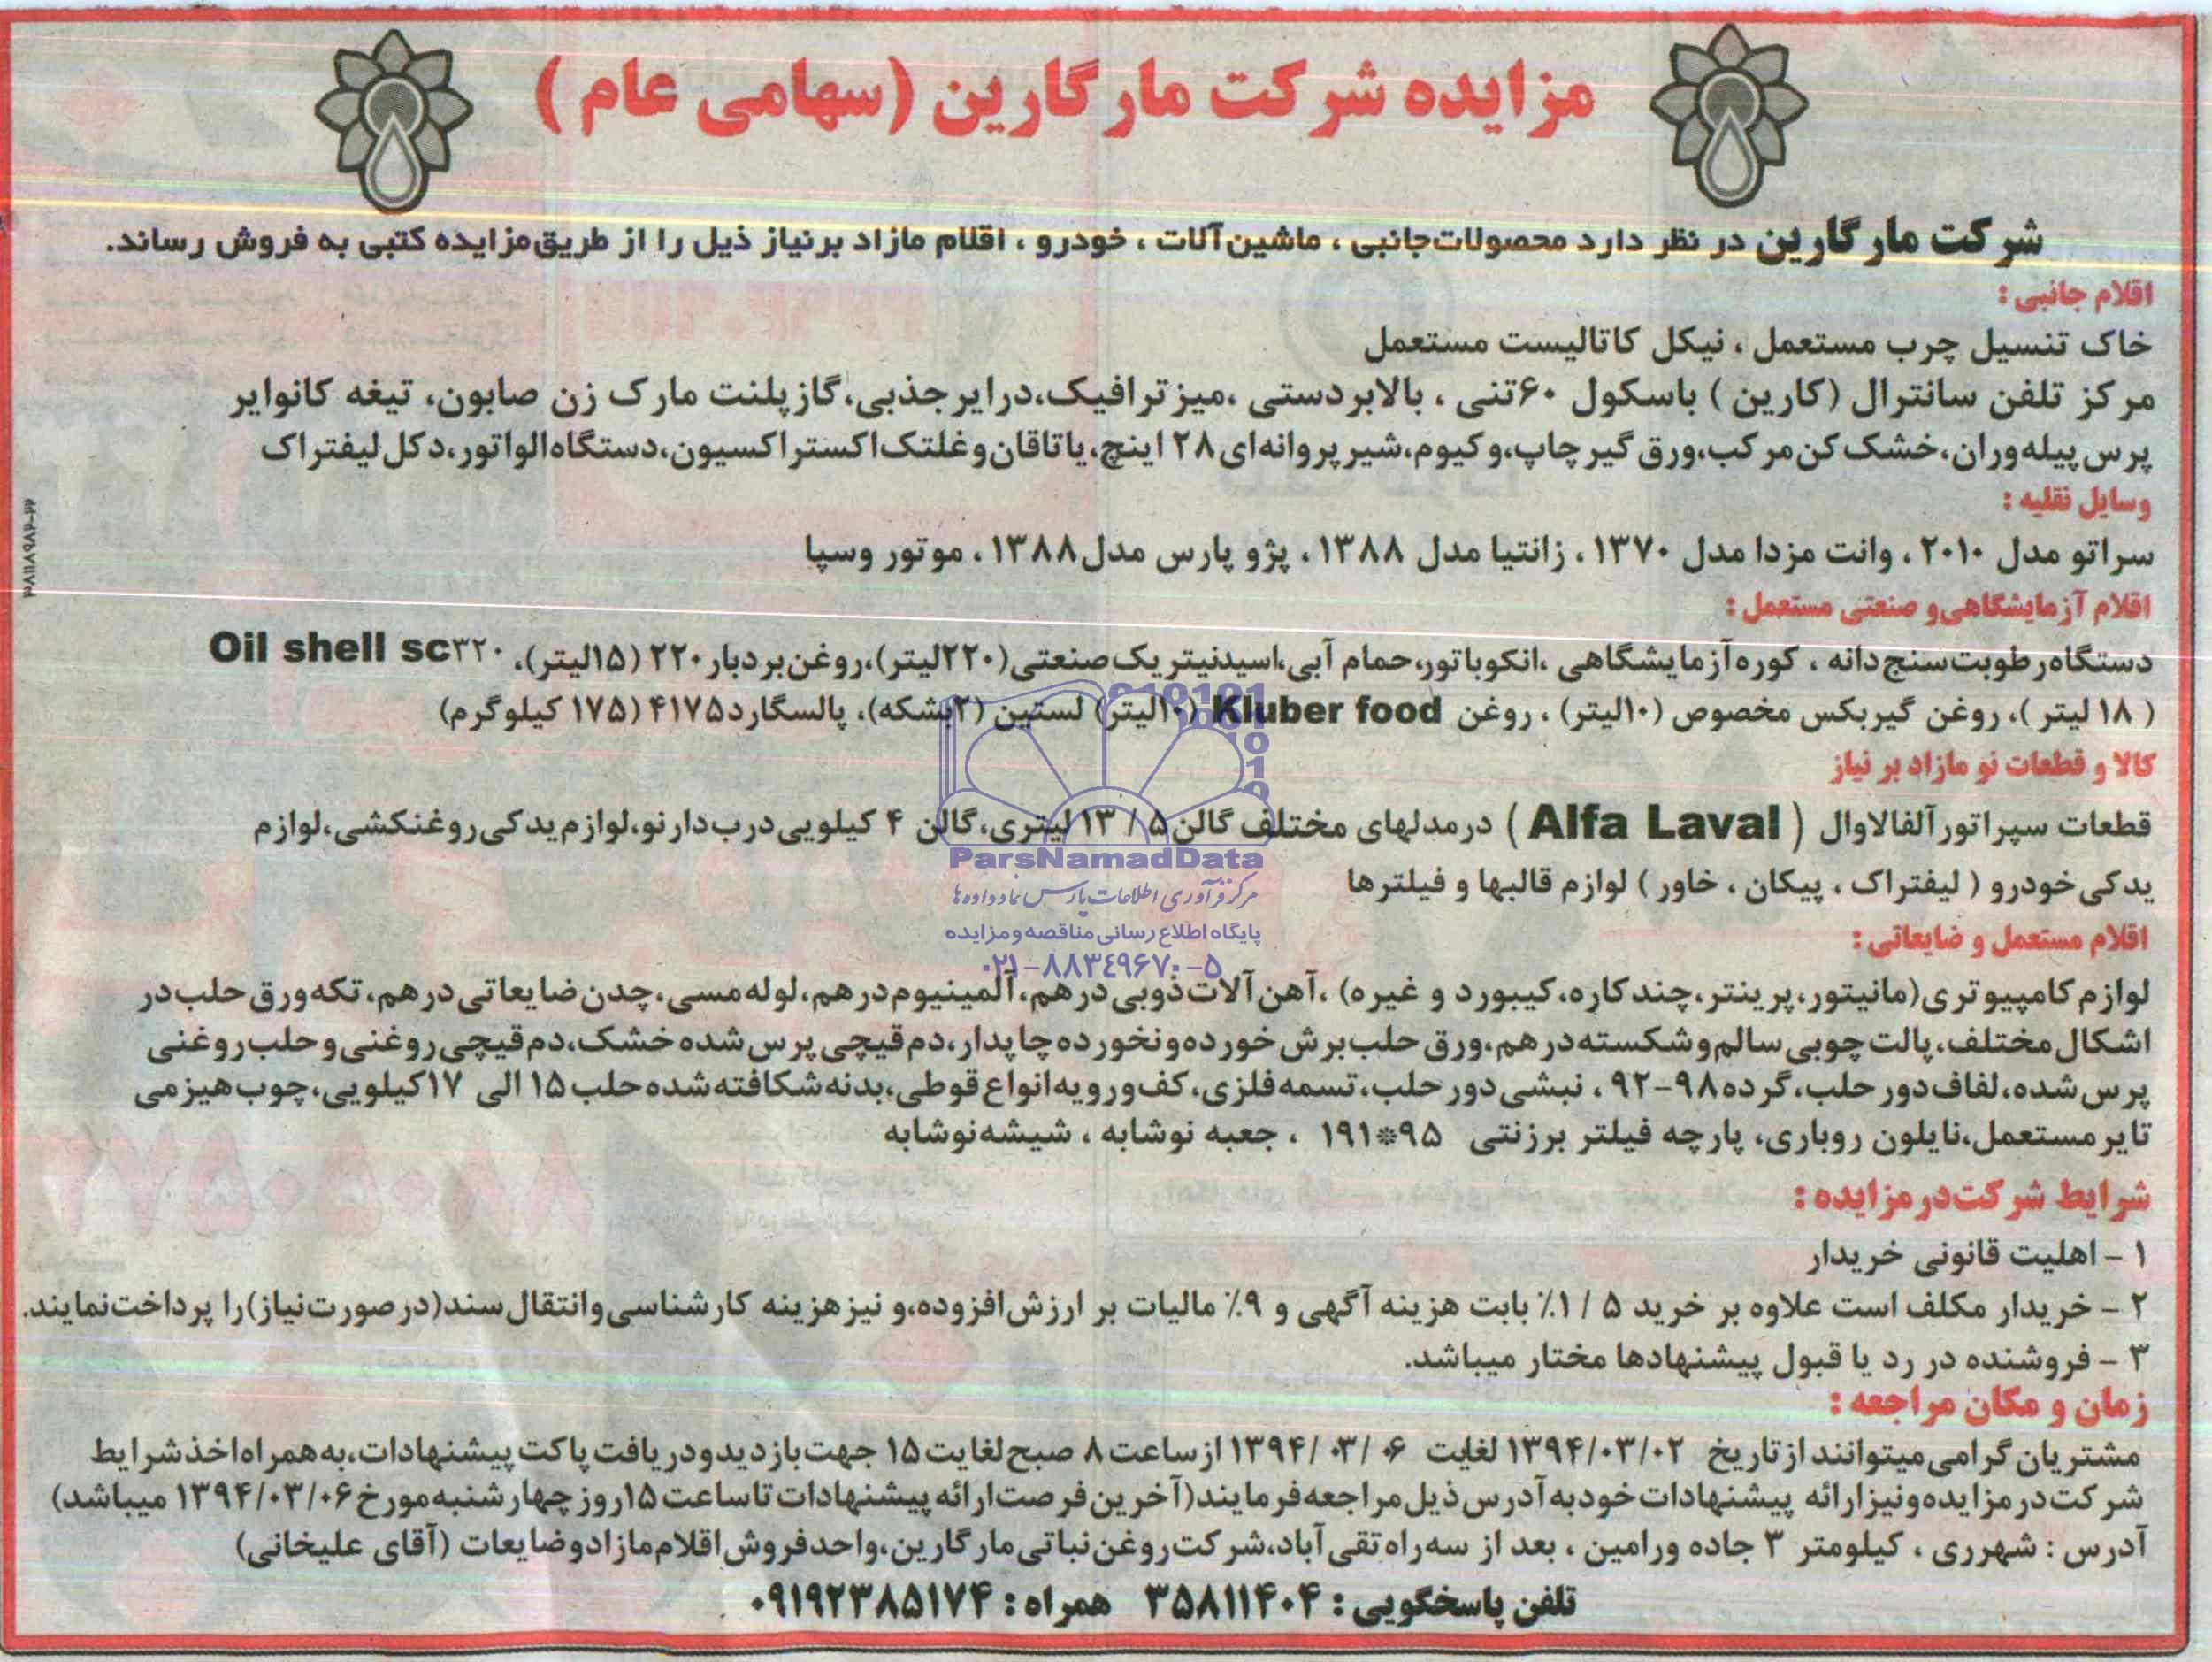 مزایده شرکت مارگارین (سهامی عام)
شرکت مارگارین در نظر دارد محصولات جانبی ، ماشین آلات ، خودرو ، اقلام مازاد برنیاز ذیل را از طریق مزایده کتبی به فروش رساند.
اقلام جانبی :
خاک تنسیل چرب مستعمل ، نیکل کاتالیست مستعمل
مرکز تلفن سانترال (کارین) باسکول ۶۰تنی ، بالابردستی ،میزترافیک،درایرجذبی،گازپلنت مارک زن صابون، تیغه کانوایر
پرس پیله‌وران،خشک کن مرکب،ورق گیرچاپ،وکیوم،شیرپروانه‌ای ۲۸ اینچ،یاتاقان و غلتک اکستراکسیون،دستگاه الواتور،دکل لیفتراک
وسایل نقلیه :
سراتو مدل ۲۰۱۰ ، وانت مزدا مدل ۱۳۷۰ ، زانتیا مدل ۱۳۸۸ ، پژو پارس مدل ۱۳۸۸ ، موتور وسپا
اقلام آزمایشگاهی و صنعتی مستعمل :
دستگاه رطوبت سنج دانه ، کوره آزمایشگاهی ،انکوباتور،حمام آبی،اسیدنیتریک صنعتی(۲۲۰لیتر)،روغن بردبار ۲۲۰ (۱۵لیتر)، Oil shell sc۳۲۰
( ۱۸ لیتر )، روغن گیربکس مخصوص (۱۰لیتر) ، روغن Kluber food (۱۰لیتر) لستین (۲بشکه)، پالسگارد۴۱۷۵ (۱۷۵ کیلوگرم)
کالا و قطعات نو مازاد بر نیاز
قطعات سپراتور آلفالاوال ( Alfa Laval ) درمدلهای مختلف گالن ۵ / ۱۳ لیتری،گالن ۴ کیلویی درب دار نو،لوازم یدکی روغنکشی،لوازم
یدکی خودرو ( لیفتراک ، پیکان ، خاور ) لوازم قالبها و فیلترها
اقلام مستعمل و ضایعاتی :
لوازم کامپیوتری(مانیتور،پرینتر،چند کاره،کیبورد و غیره) ،آهن آلات ذوبی درهم،آلمینیوم درهم،لوله مسی،چدن ضایعاتی درهم،تکه ورق حلب در
اشکال مختلف،پالت چوبی سالم و شکسته درهم،ورق حلب برش خورده و نخورده چاپدار،دم قیچی پرس شده خشک،دم قیچی روغنی و حلب روغنی
پرس شده،لفاف دور حلب،گرده ۹۸-۹۲ ، نبشی دور حلب،تسمه فلزی،کف و رویه انواع قوطی،بدنه شکافته شده حلب ۱۵ الی ۱۷ کیلویی،چوب هیزمی
تایر مستعمل،نایلون روباری، پارچه فیلتر برزنتی ۹۵*۱۹۱ ، جعبه نوشابه ، شیشه نوشابه
شرایط شرکت در مزایده :
۱ - اهلیت قانونی خریدار
۲ - خریدار مکلف است علاوه بر خرید ۵ / ۱٪ بابت هزینه آگهی و ۹٪ مالیات بر ارزش افزوده،و نیز هزینه کارشناسی و انتقال سند(در صورت نیاز)را پرداخت نمایند.
۳ - فروشنده در رد یا قبول پیشنهادها مختار میباشد.
زمان و مکان مراجعه :
مشتریان گرامی میتوانند از تاریخ ۱۳۹۴/۰۳/۰۲ لغایت ۱۳۹۴/۰۳/۰۶ از ساعت ۸ صبح لغایت ۱۵ جهت بازدید و دریافت پاکت پیشنهادات،به همراه اخذ شرایط
شرکت در مزایده و نیز ارائه پیشنهادات خود به آدرس ذیل مراجعه فرمایند(آخرین فرصت ارائه پیشنهادات تا ساعت ۱۵ روز چهارشنبه مورخ ۱۳۹۴/۰۳/۰۶ میباشد)
آدرس : شهرری ، کیلومتر ۳ جاده ورامین ، بعد از سه راه تقی آباد،شرکت روغن نباتی مارگارین،واحد فروش اقلام مازاد و ضایعات (آقای علیخانی)
تلفن پاسخگویی : ۳۵۸۱۱۴۰۴ همراه : ۰۹۱۹۲۳۸۵۱۷۴
ParsNamadData
مرکز فرآوری اطلاعات پارس نماد داده ها
پایگاه اطلاع رسانی مناقصه و مزایده
۰۲۱-۸۸۳۴۹۶۷۰-۵